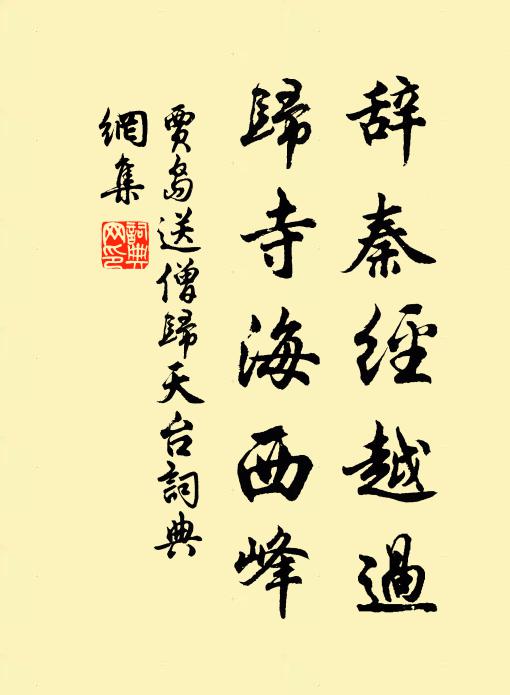 辞秦經越過
歸寺海西峰
賈島送僧歸天台詞典
網集
詞典
网印